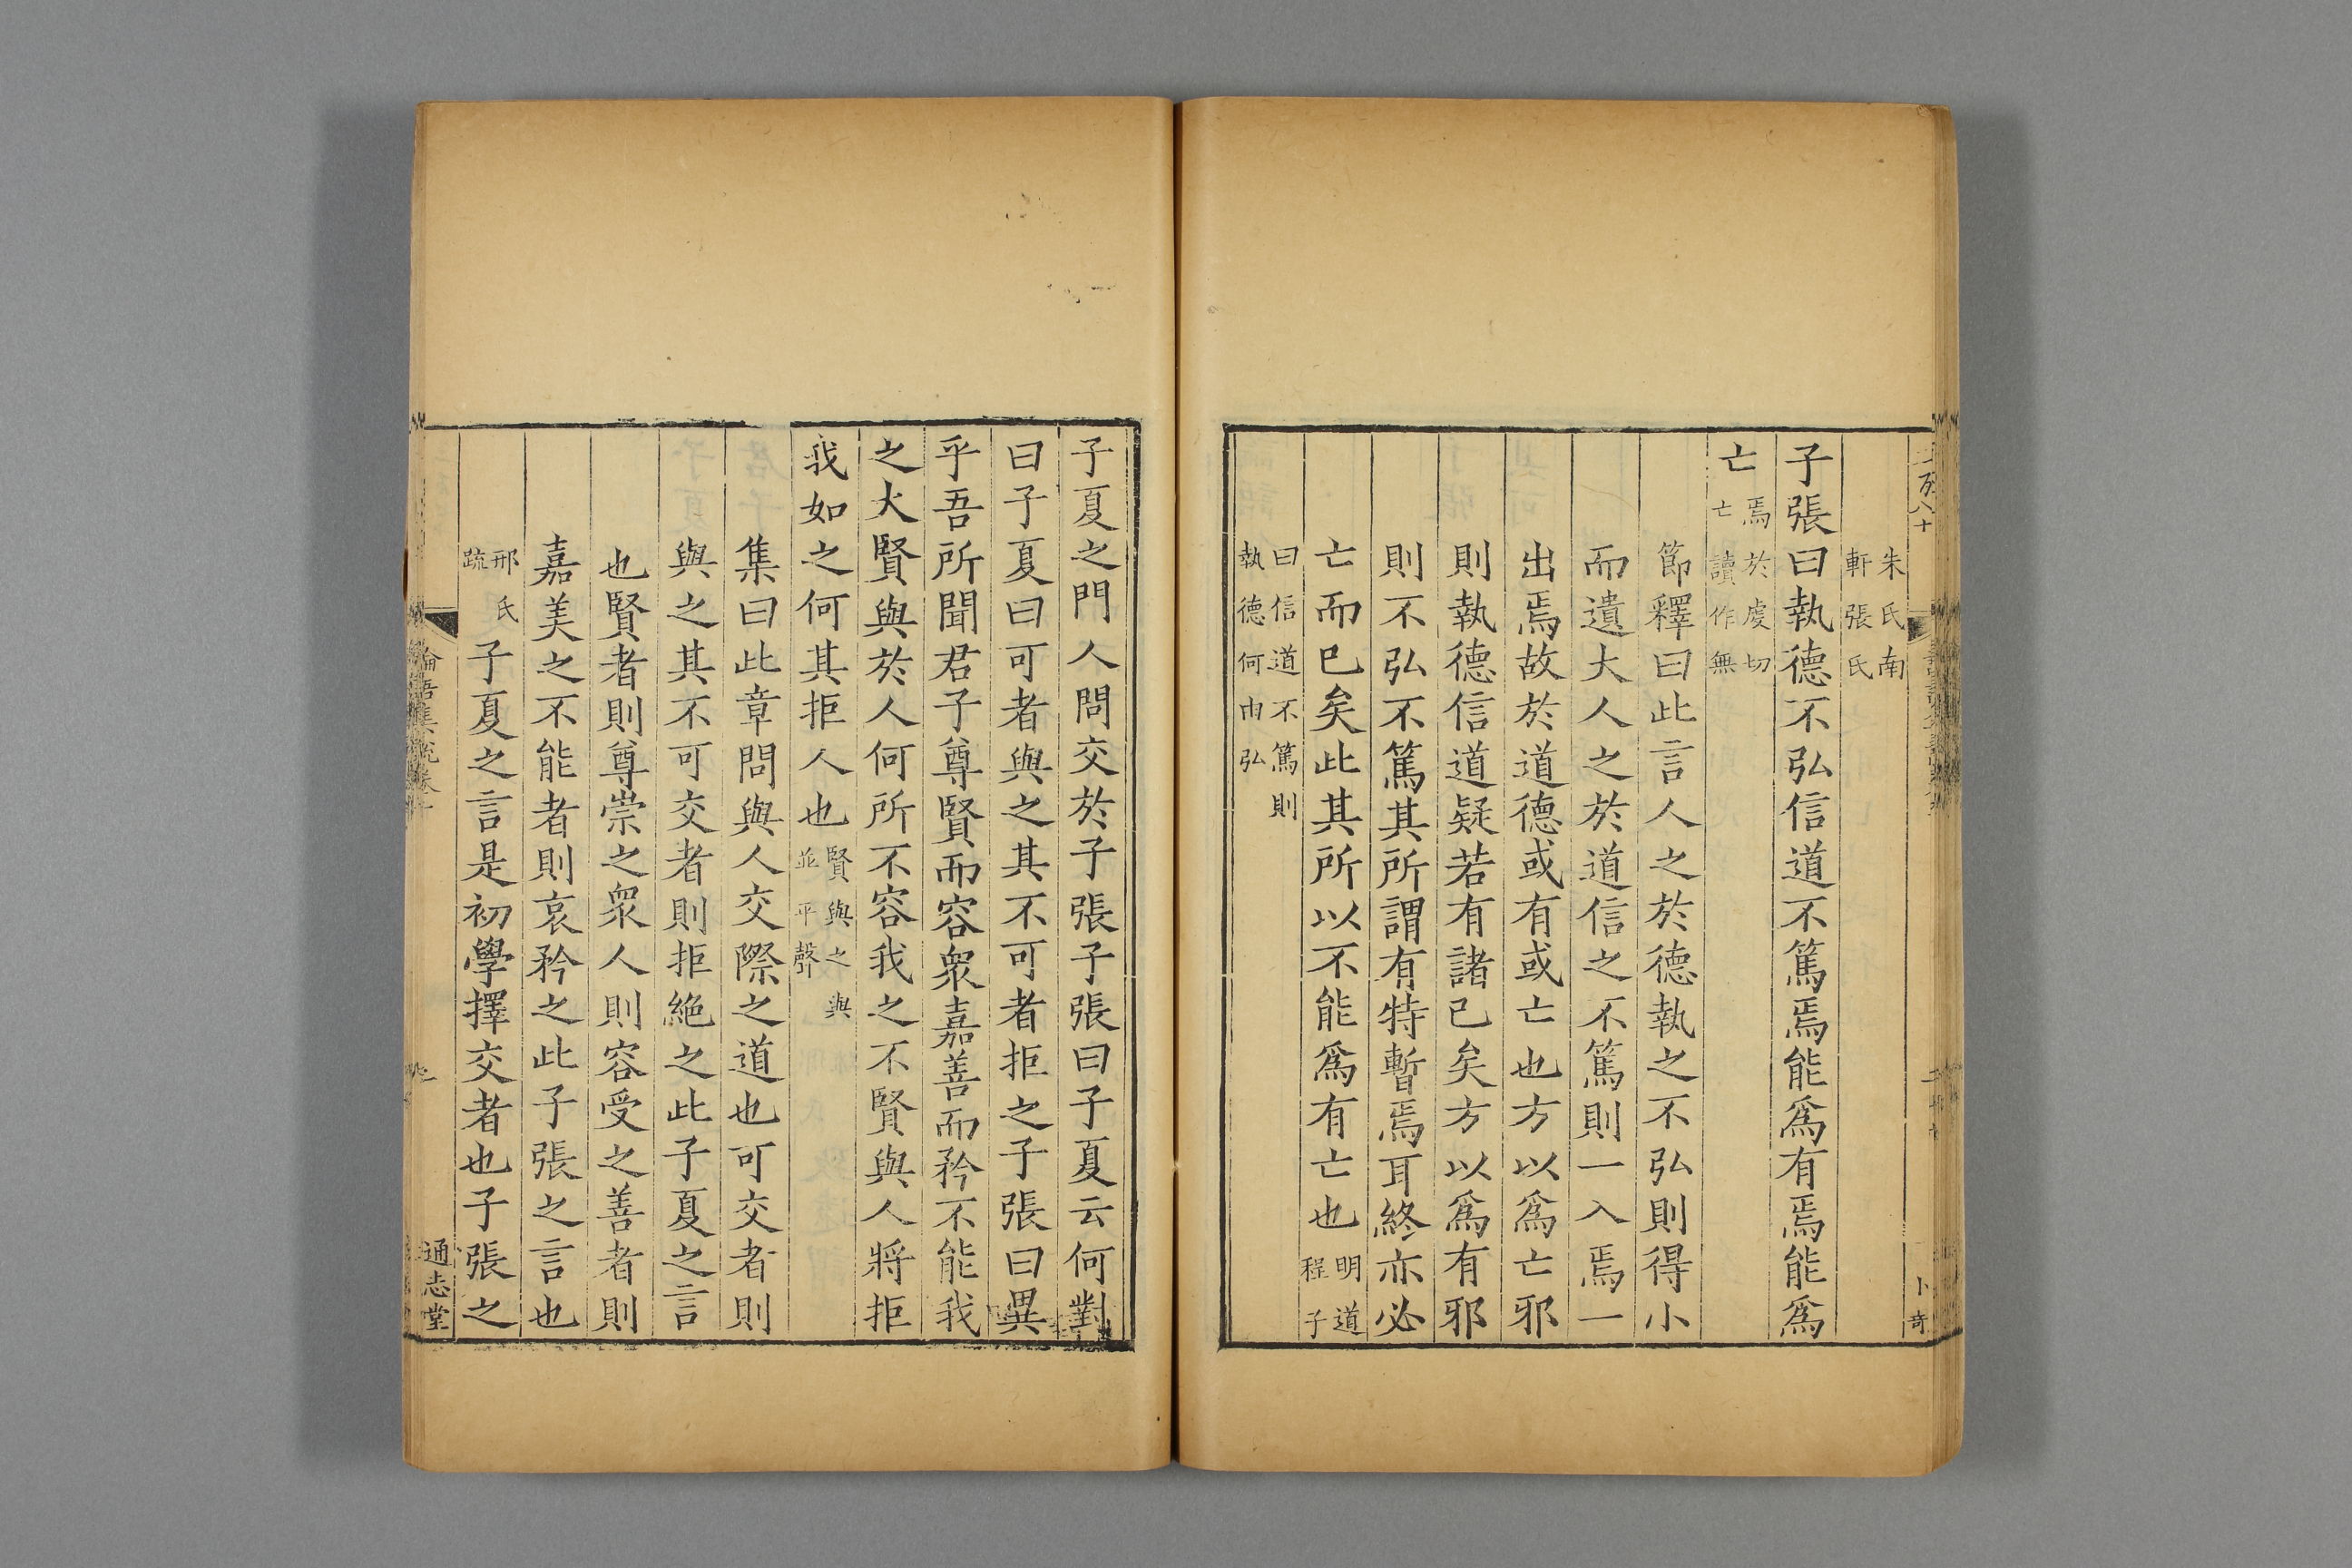 朱氏南
軒張氏
子張曰執德不弘信道不篤焉能爲有焉能爲
亡
焉於虔切
亡讀作無
節釋曰此言人之於德執之不弘則得小
而遺大人之於道信之不篤則一入焉一
出焉故於道德或有或亡也方以爲亡邪
則執德信道疑若有諸己矣方以爲有邪
則不弘不篤其所謂有特暫焉耳終亦必
亡而已矣此其所以不能爲有亡也
明道
程子
曰信道不篤則
執德何由弘
子夏之門人問交於子張子張曰子夏云何對
曰子夏曰可者與之其不可者拒之子張曰異
乎吾所聞君子尊賢而容衆嘉善而矜不能我
之大賢與於人何所不容我之不賢與人將拒
我如之何其拒人也
賢與之與
並平聲
集曰此章問與人交際之道也可交者則
與之其不可交者則拒絕之此子夏之言
也賢者則尊崇之衆人則容受之善者則
嘉美之不能者則哀矜之此子張之言也
邢氏
疏
子夏之言是初學擇交者也子張之
通志堂